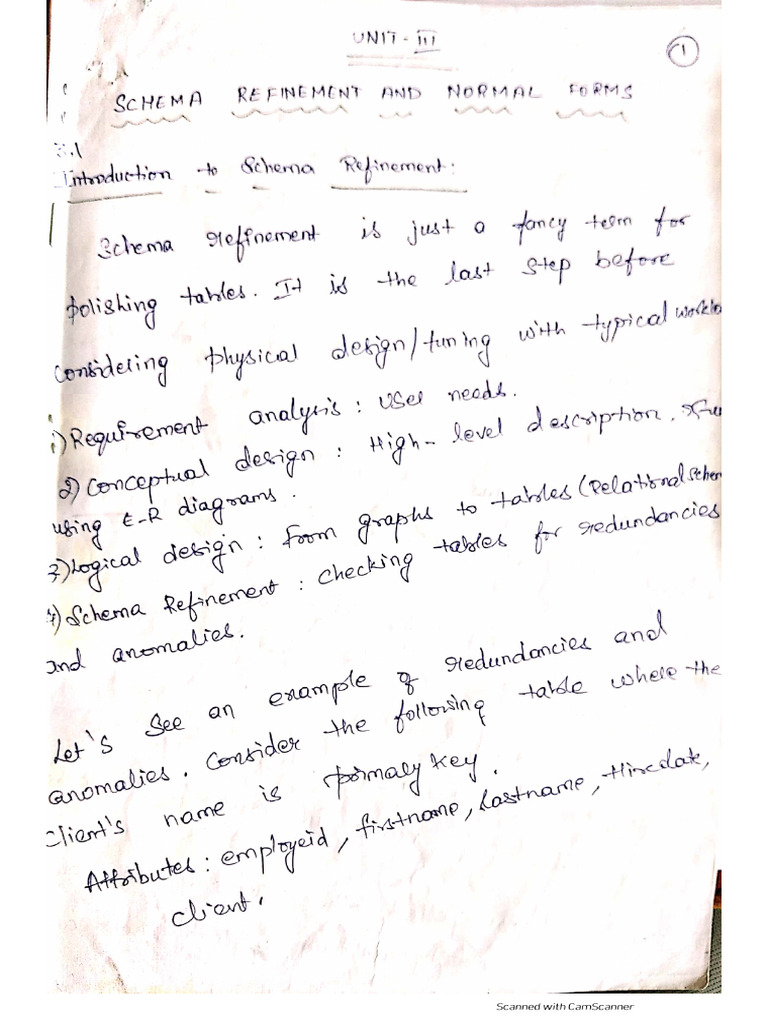 UNIT-III
1
SCHEMA REFINEMENT AND NORMAL FORMS
3.1
Introduction to Schema Refinement:
Schema refinement is just a fancy term for
polishing tables. It is the last step before
considering physical design/tuning with typical
1) Requirement analysis: user needs.
2) Conceptual design: High-level description,
using E-R diagrams.
3) Logical design: from graphs to tables (relational
4) Schema Refinement: checking tables for redundancies
and anomalies.
Let's see an example of redundancies and
anomalies. Consider the following table where the
client's name is primary key.
Attributes: employeid, firstname, Lastname, Hiredate,
client.
Scanned with CamScanner